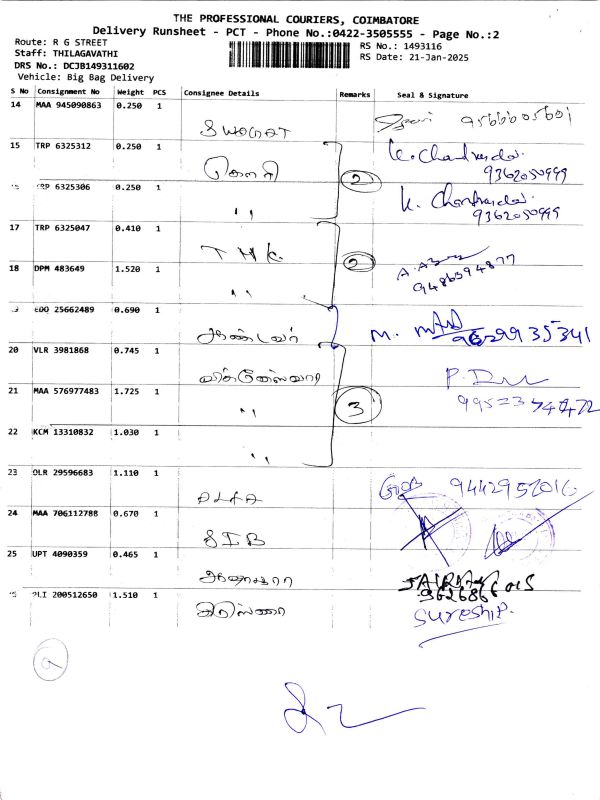 THE PROFESSIONAL COURIERS, COIMBATORE
Delivery Runsheet - PCT - Phone No.:0422-3505555 - Page No.:2
Route: R G STREET
RS No.: 1493116
Staff: THILAGAVATHI
RS Date: 21-Jan-2025
DRS No.: DCJB149311602
Vehicle: Big Bag Delivery
S No Consignment No Weight PCS Consignee Details Remarks Seal & Signature
14 MAA 945090863 0.250 1 9566005601
15 TRP 6325312 0.250 1 கௌரி K. Chandru 
9362050999
TRP 6325306 0.250 1 " 2 K. Chandru
9362050999
17 TRP 6325047 0.410 1 T H K
18 DPM 483649 1.520 1 " 2 9486594877
EDO 25662489 0.690 1 ஆண்டவர் M. 9629935341
20 VLR 3981868 0.745 1 விக்னேஸ்வரா
21 MAA 576977483 1.725 1 " 3
22 KCM 13310832 1.030 1 "
23 OLR 29596683 1.110 1 9442952016
24 MAA 706112788 0.670 1 SIB
25 UPT 4090359 0.465 1
200512650 1.510 1 Suresh.P.
9